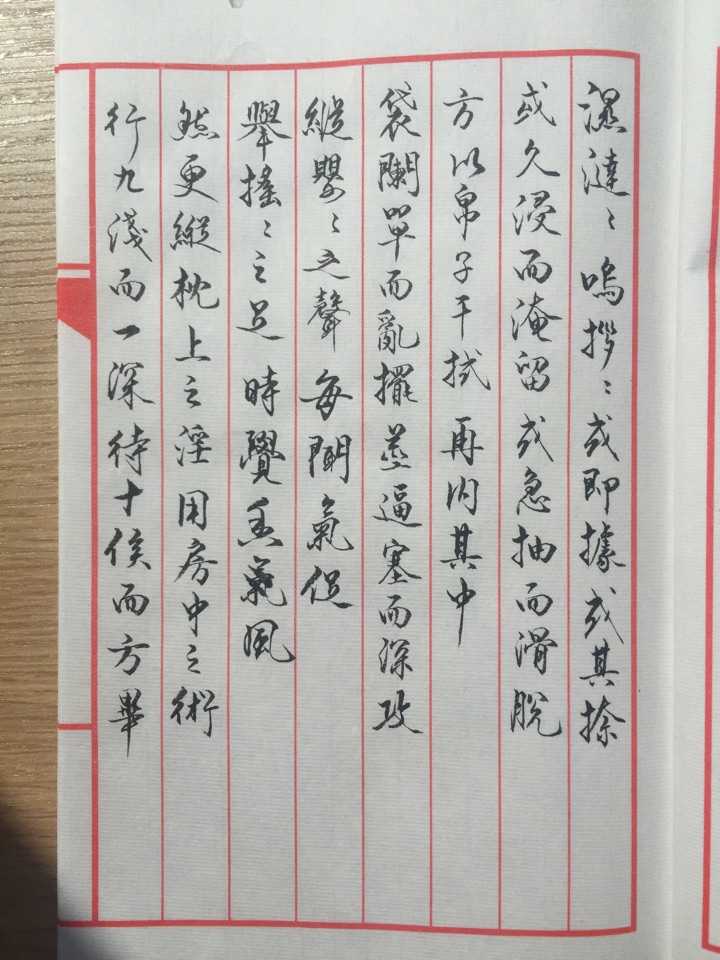 濕澾〻嗚拶〻或即據或其捺
或久浸而淹留或急抽而滑脫
方以帛子干拭再内其中
袋闌單而亂擺莖逼塞而深攻
縱嬰〻之聲每聞氣促
舉搖〻之足時覺香氣風
然更縱枕上之淫用房中之術
行九淺而一深待十候而方畢